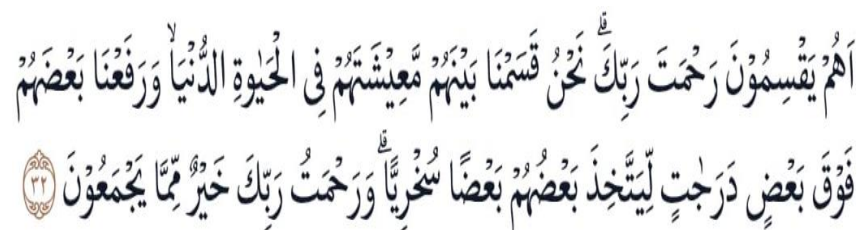 اَهُمْ يَقْسِمُوْنَ رَحْمَتَ رَبِّكَ ۗ نَحْنُ قَسَمْنَا بَيْنَهُمْ مَّعِيْشَتَهُمْ فِى الْحَيٰوةِ الدُّنْيَا ۙ وَرَفَعْنَا بَعْضَهُمْ
فَوْقَ بَعْضٍ دَرَجٰتٍ لِّيَتَّخِذَ بَعْضُهُمْ بَعْضًا سُخْرِيًّا ۗ وَرَحْمَتُ رَبِّكَ خَيْرٌ مِّمَّا يَجْمَعُوْنَ ٣٢